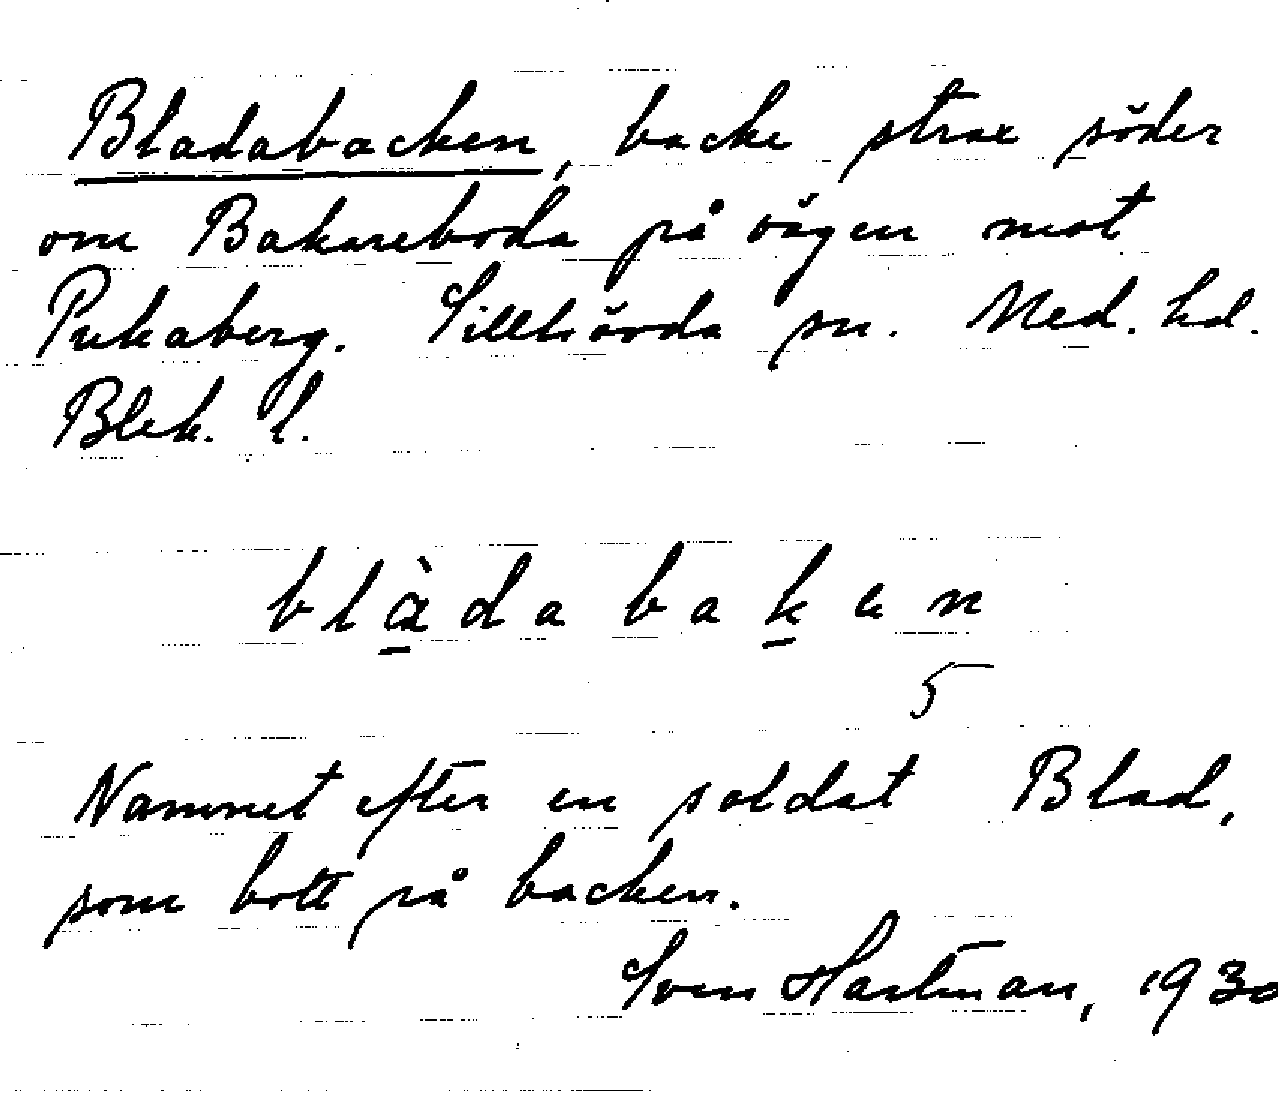 Bladabacken, backe strax söder
om Bakareboda på vägen mot
Pukaberg. Sillhövda sn. Med. hd.
Blek. l.
blàdabaken
5
Namnet efter en soldat Blad,
som bott på backen.
Sven Hartman, 1930